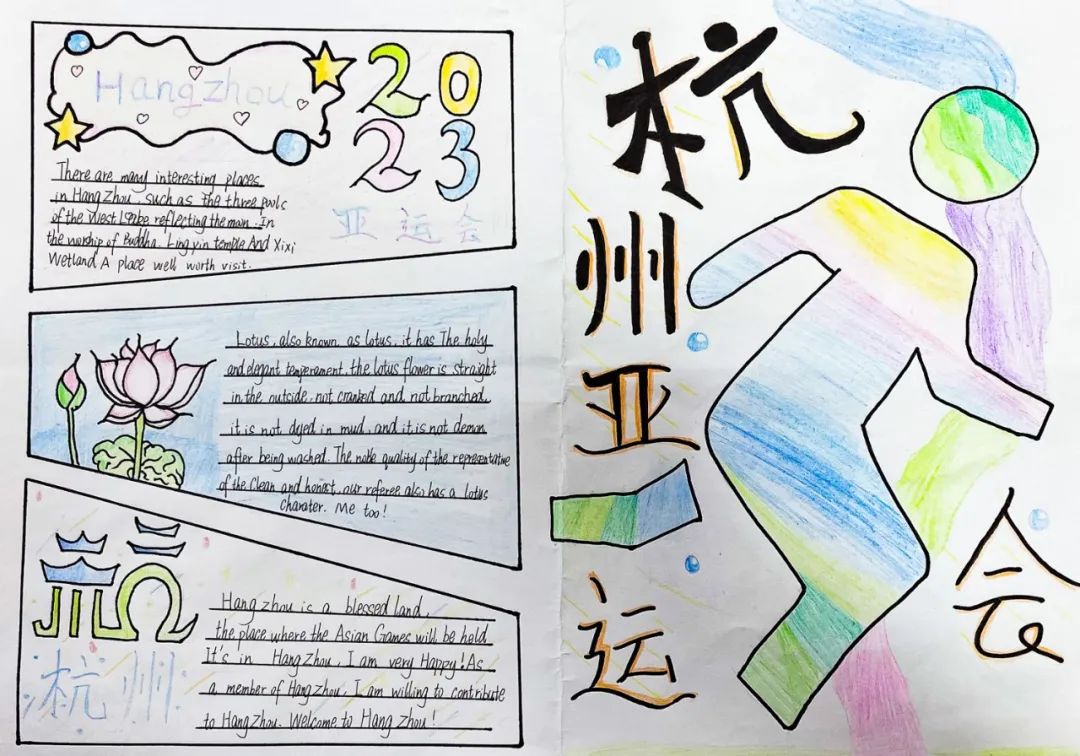 Hangzhou
2023
亚运会
There are many interesting places
in HangZhou, such as The three pools
of the West Lake reflecting the moon. In
the worship of Buddha. Ling yin temple And Xixi
Wetland A place well worth visit.
Lotus, also known as lotus, it has The holy
and elegant temperament. the lotus flower is straight
in the outside, not cranked and not branched,
it is not dyed in mud, and it is not demon
after being wached. The noble quality of the representative
of the Clean and honest, our referee also has a lotus
Charater. Me too!
杭州
Hang zhou is a blessed land,
the place where the Asian Games will be held
It's in HangZhou, I am very Happy! As
a member of HangZhou, I am willing to contribute
to HangZhou. Welcome to Hang zhou!
杭
州
亚
运
会